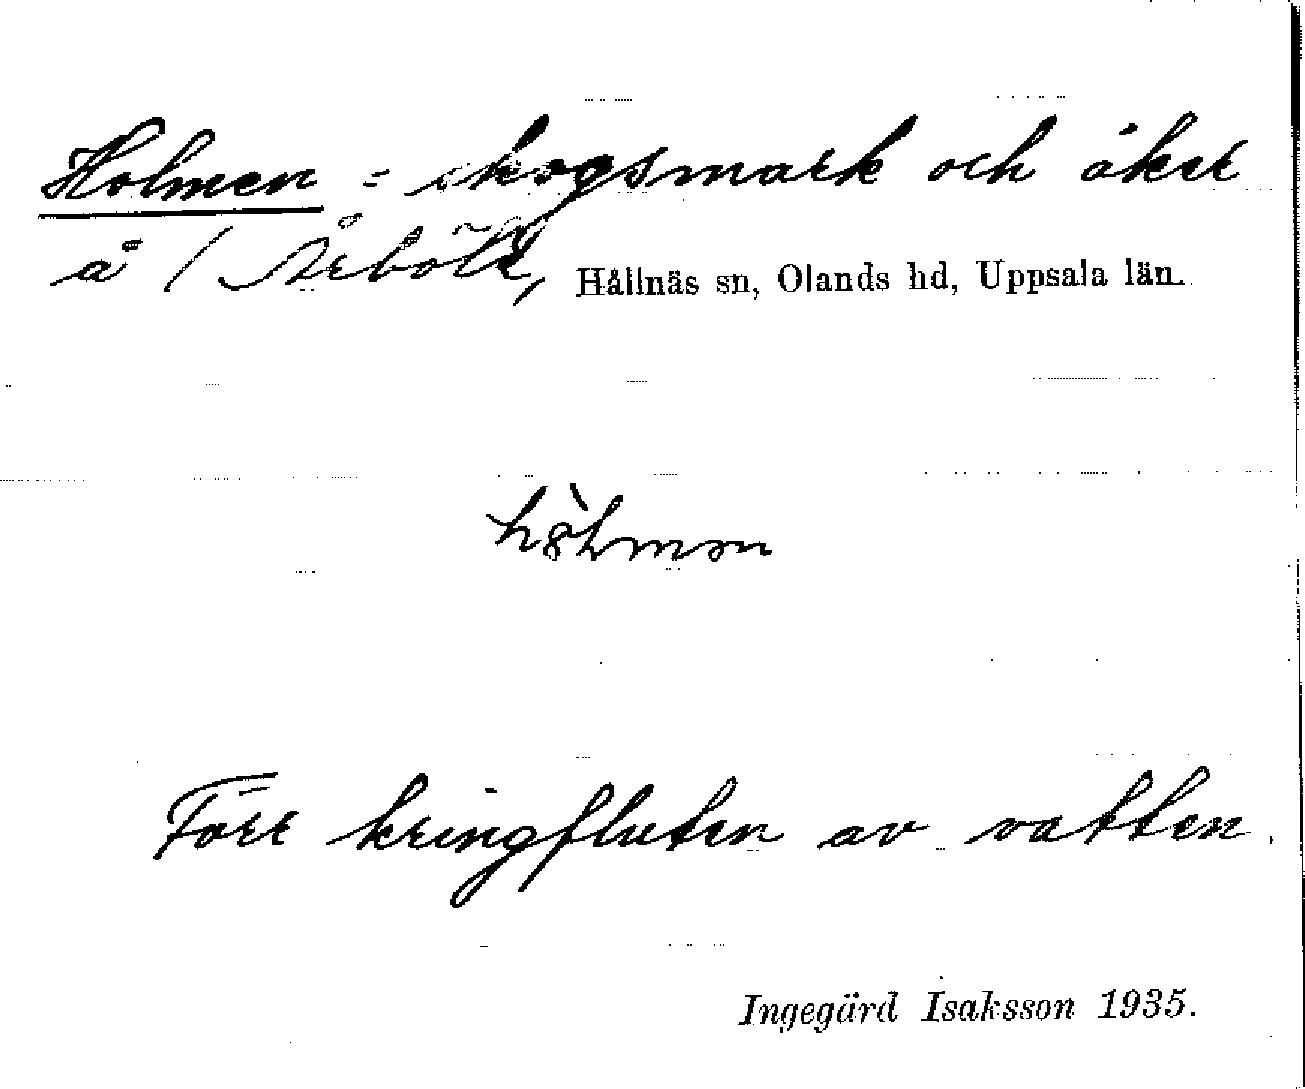 Holmen = skogsmark och åker
å / Årböle, Hållnäs sn, Olands hd, Uppsala län.
hòlmən
Förr kringfluten av vatten.
Ingegärd Isaksson 1935.